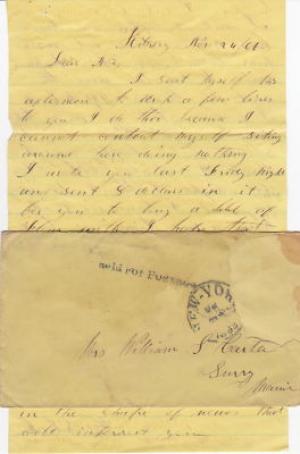 Nov 24/61
Dear
I seat myself this
afternoon to drop a few lines
to you I do this because I
cannot content myself siting
around here doing nothing
I wrote you last Friday night
and sent 8 dollars in it
for you to buy a
I hope that
Held For Postage
NEW-YORK
Mrs William S Carter
Surry
Maine
in the shape of news that
will interest you